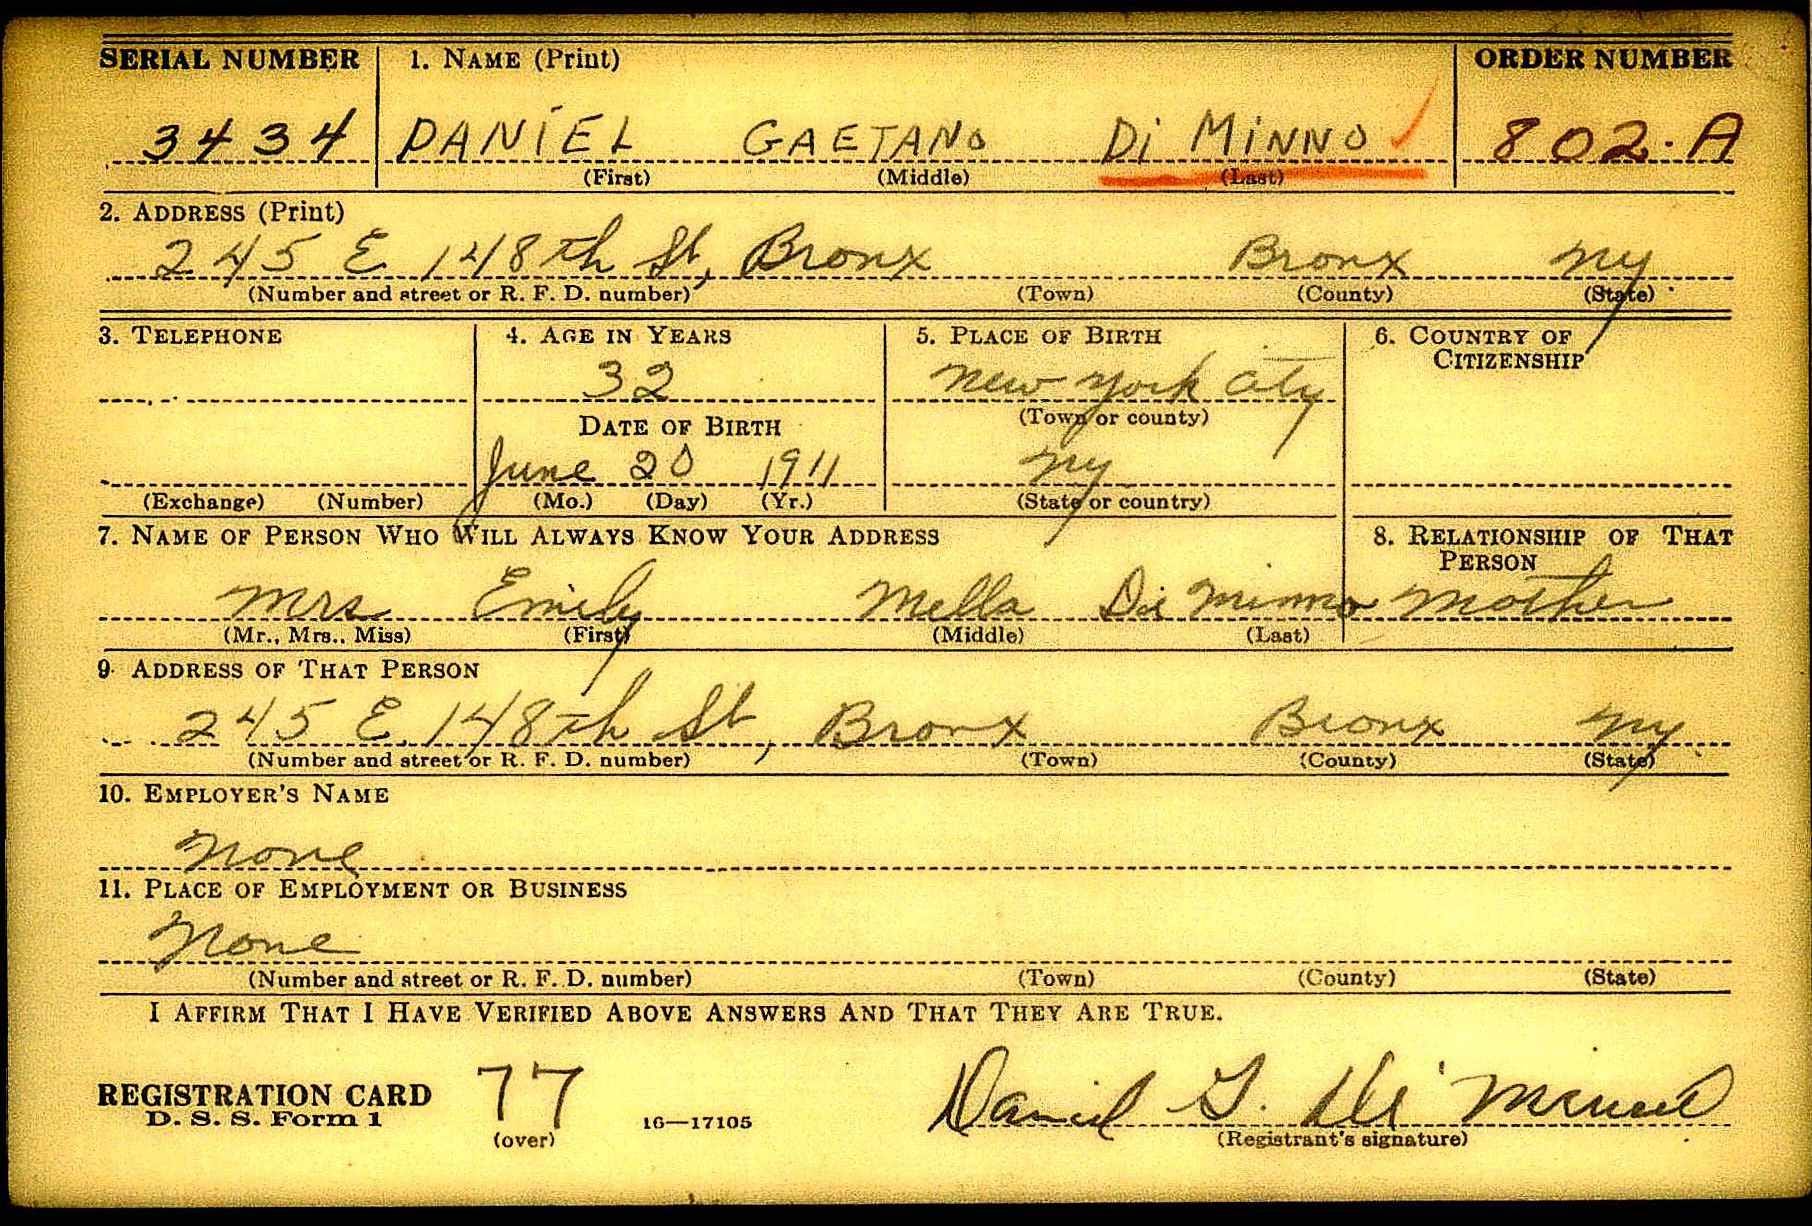 SERIAL NUMBER 1. NAME (Print) ORDER NUMBER
3434 DANIEL GAETANO Di MiNNO 802-A
(First) (Middle) (Last)
2. ADDRESS (Print)
245 E 148th St, Bronx Bronx NY
(Number and street or R. F. D. number) (Town) (County) (State)
3. TELEPHONE 4. AGE IN YEARS 5. PLACE OF BIRTH 6. COUNTRY OF CITIZENSHIP
32 New York City
DATE OF BIRTH (Town or county)
June 20 1911 NY
(Exchange) (Number) (Mo.) (Day) (Yr.) (State or country)
7. NAME OF PERSON WHO WILL ALWAYS KNOW YOUR ADDRESS 8. RELATIONSHIP OF THAT PERSON
Mrs Emily Mella Di Minno Mother
(Mr., Mrs., Miss) (First) (Middle) (Last)
9. ADDRESS OF THAT PERSON
245 E. 148th St, Bronx Bronx NY
(Number and street or R. F. D. number) (Town) (County) (State)
10. EMPLOYER'S NAME
None
11. PLACE OF EMPLOYMENT OR BUSINESS
None
(Number and street or R. F. D. number) (Town) (County) (State)
I AFFIRM THAT I HAVE VERIFIED ABOVE ANSWERS AND THAT THEY ARE TRUE.
REGISTRATION CARD 77 Daniel G. Di Minno
D. S. S. Form 1 (over) 16—17105 (Registrant's signature)